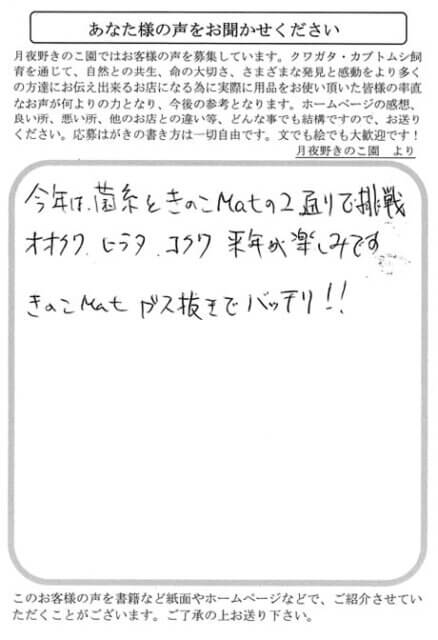 あなた様の声をお聞かせください
月夜野きのこ園ではお客様の声を募集しています。クワガタ・カブトムシ飼
育を通じて、自然との共生、命の大切さ、さまざまな発見と感動をより多く
の方達にお伝え出来るお店になる為に実際に用品をお使い頂いた皆様の率直
なお声が何よりの力となり、今後の参考となります。ホームページの感想、
良い所、悪い所、他のお店との違い等、どんな事でも結構ですので、お送り
ください。応募はがきの書き方は一切自由です。文でも絵でも大歓迎です！
月夜野きのこ園　より
今年は、菌糸ときのこMatの2通りで挑戦
オオクワ、ヒラタ、コクワ 来年が楽しみです
きのこMat ガス抜きでバッチリ!!
このお客様の声を書籍など紙面やホームページなどで、ご紹介させてい
ただくことがございます。ご了承の上お送り下さい。